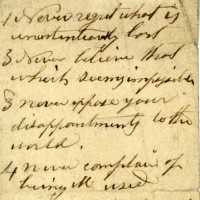 1 Never regret what is
unintentionly lost
3 Never believe that
which seems impossible
3 never expose your
disappointments to the
world.
4 never complain of
being ill used